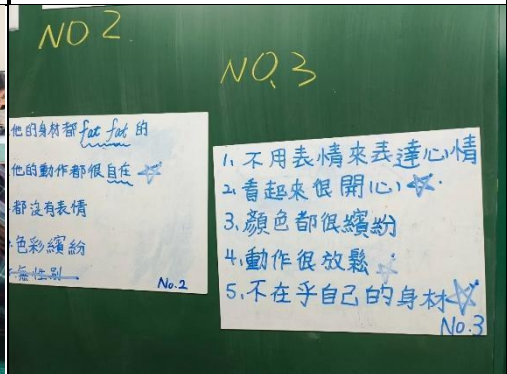 NO 2
NO.3
他的身材都fat fat 的
他的動作都很自在
都沒有表情
色彩繽紛
無性別
No.2
1、不用表情來表達心情
2、看起來很開心
3、顏色都很繽紛
4、動作很放鬆
5、不在乎自己的身材
No.3